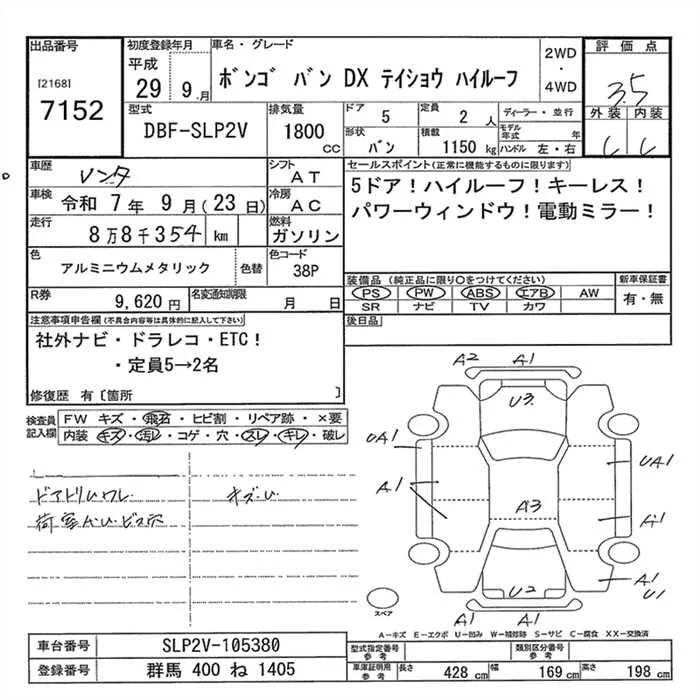 出品番号
[2168]
7152
初度登録年月
平成
29 9 .月
車名・グレード
ボンゴ バン DX テイショウ ハイルーフ
2WD
・
4WD
評価点
3.5
外装 内装
型式
DBF-SLP2V
排気量
1800 CC
ドア 5
定員 2 人
形状 バン
積載 1150 kg
ディーラー・並行
モデル年式 年
ハンドル 左・右
車歴
レンタ
シフト
AT
車検
令和 7 年 9 月 (23 日)
冷房
AC
走行
8万8千354 km
燃料
ガソリン
色
アルミニウムメタリック
色替
色コード
38P
R券
9,620 円
名変通知期限
月 日
セールスポイント(正常に機能するものに限ります)
5ドア!ハイルーフ!キーレス!
パワーウィンドウ!電動ミラー!
装備品 (純正品に限り〇をつけてください)
PS PW ABS エアB AW
SR ナビ TV カワ
新車保証書
有・無
後日品
注意事項申告欄(不具合内容等は具体的に記入して下さい)
社外ナビ・ドラレコ・ETC!
・定員5→2名
修復歴 有〔箇所 〕
検査員記入欄
FW キズ・飛石・ヒビ割・リペア跡・×要
内装 キズ・汚レ・コゲ・穴・スレ・キレ・破レ
キズU
A2 A1
U3
UA1
UA1
A1
A3
A1
U2
A1
U1
A1 A1
スペア
A-キズ E-エクボ U-凹み W-補修跡 S-サビ C-腐食 XX-交換済
車台番号
SLP2V-105380
登録番号
群馬 400 ね 1405
型式指定番号
参考
類別区分番号
参考
車庫証明用
参考
長さ 428 cm 幅 169 cm 高さ 198 cm